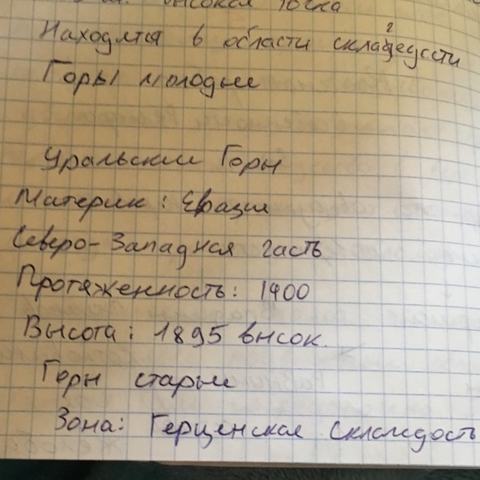 высокая точка
Находится в области складчусти
Горы молодые
Уральские Горы
Материк: Евразия
Северо-Западная часть
Протяженность: 1900
Высота: 1895 высок.
Горы старые
Зона: Герценская складость